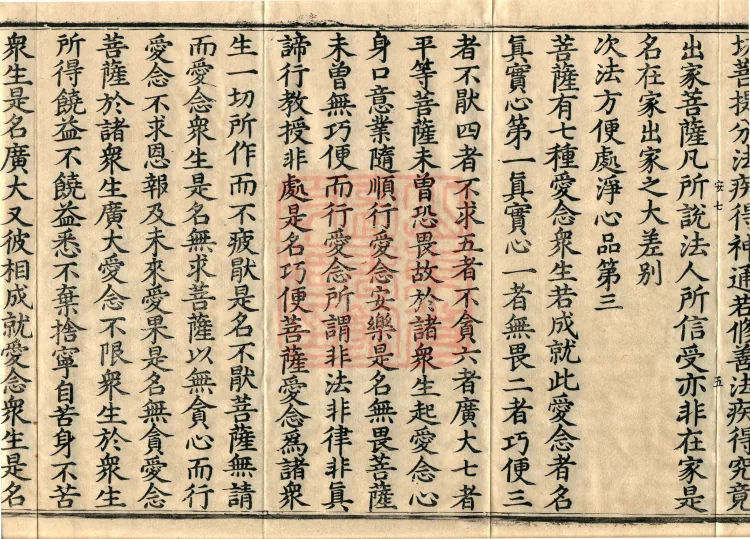 埸菩提分法疾得神通若修善法疾得究竟
安七
五
出家菩薩凡所說法人所信受亦非在家是
名在家出家之大差別
次法方便處淨心品第三
菩薩有七種愛念衆生若成就此愛念者名
眞實心第一眞實心一者無畏二者巧便三
者不猒四者不求五者不貪六者廣大七者
平等菩薩未曾恐畏故於諸衆生起愛念心
身口意業隨順行愛念安樂是名無畏菩薩
未曾無巧便而行愛念所謂非法非律非眞
諦行教授非處是名巧便菩薩愛念爲諸衆
生一切所作而不疲猒是名不猒菩薩無請
而愛念衆生是名無求菩薩以無貪心而行
愛念不求恩報及未來愛果是名無貪愛念
菩薩於諸衆生廣大愛念不限衆生於衆生
所得饒益不饒益悉不棄捨寧自苦身不苦
衆生是名廣大又彼相成就愛念衆生是名